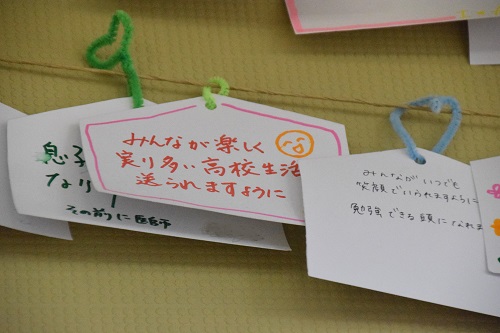 息子
なり
その前に医師
みんなが楽しく
実り多い高校生活
送られますように
みんながいつでも
笑顔でいられますように
勉強できる頭になれま